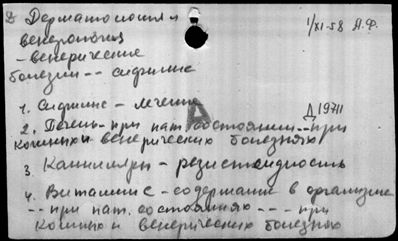 Дерматология и 1/XI-58 Я.Ф.
венерология
- венерические
болезни -- сифилис
1. Сифилис - лечение
Д 19711
2. Печень - при пат. состоянии -- при
кожных и венерических болезнях
3. Капилляры - резистентность
4. Витамин C - содержание в организме
-- при пат. состояниях -- - при
кожных и венерических болезнях